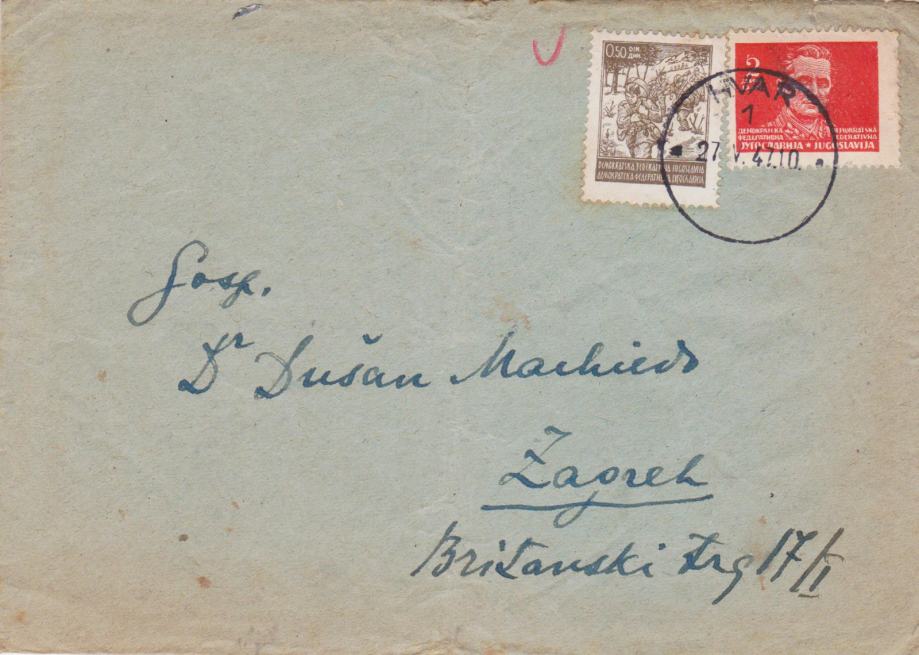 0.50 DIN.
ДИН.
DEMOKRATSKA FEDERATIVNA JUGOSLAVIJA
ДЕМОКРАТСКА ФЕДЕРАТИВНА ЈУГОСЛАВИЈА
2
ДЕМОКРАТСКА
ФЕДЕРАТИВНА
ЈУГОСЛАВИЈА ★ JUGOSLAVIJA
DEMOKRATSKA
FEDERATIVNA
HVAR
1
27.V.47.10.
Gosp.
Dr Dušan Machiedo
Zagreb
Britanski trg 17/II